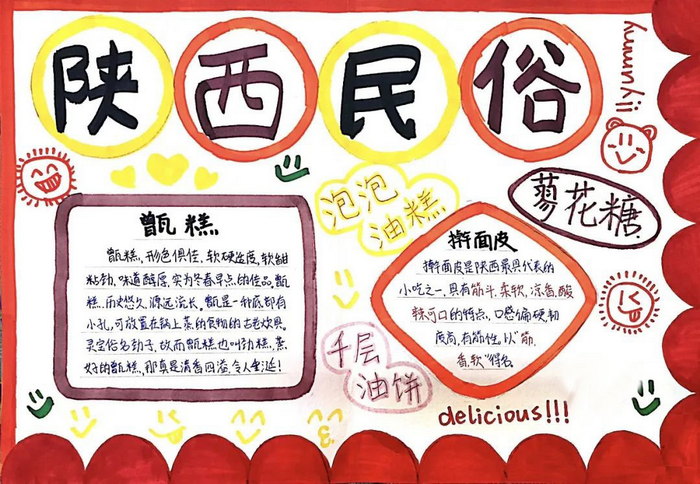 陕西民俗
yummy!!
泡泡
油糕
蓼花糖
甑糕
甑糕，形色俱佳，软硬适度，软甜
粘劲，味道醇厚，实为冬春早点的佳品，甑
糕历史悠久，源远流长。甑是一种底部有
小孔，可放置在锅上蒸的食物的古老炊具。
灵宝俗名劲子，故而甑糕也叫劲糕，蒸
好的甑糕，那真是清香四溢，令人垂涎！
擀面皮
擀面皮是陕西最具代表的
小吃之一，具有筋斗，柔软，凉香，酸
辣可口的特点，口感偏硬韧
度高，有筋性，以"筋，
香，软"得名。
千层
油饼
delicious!!!